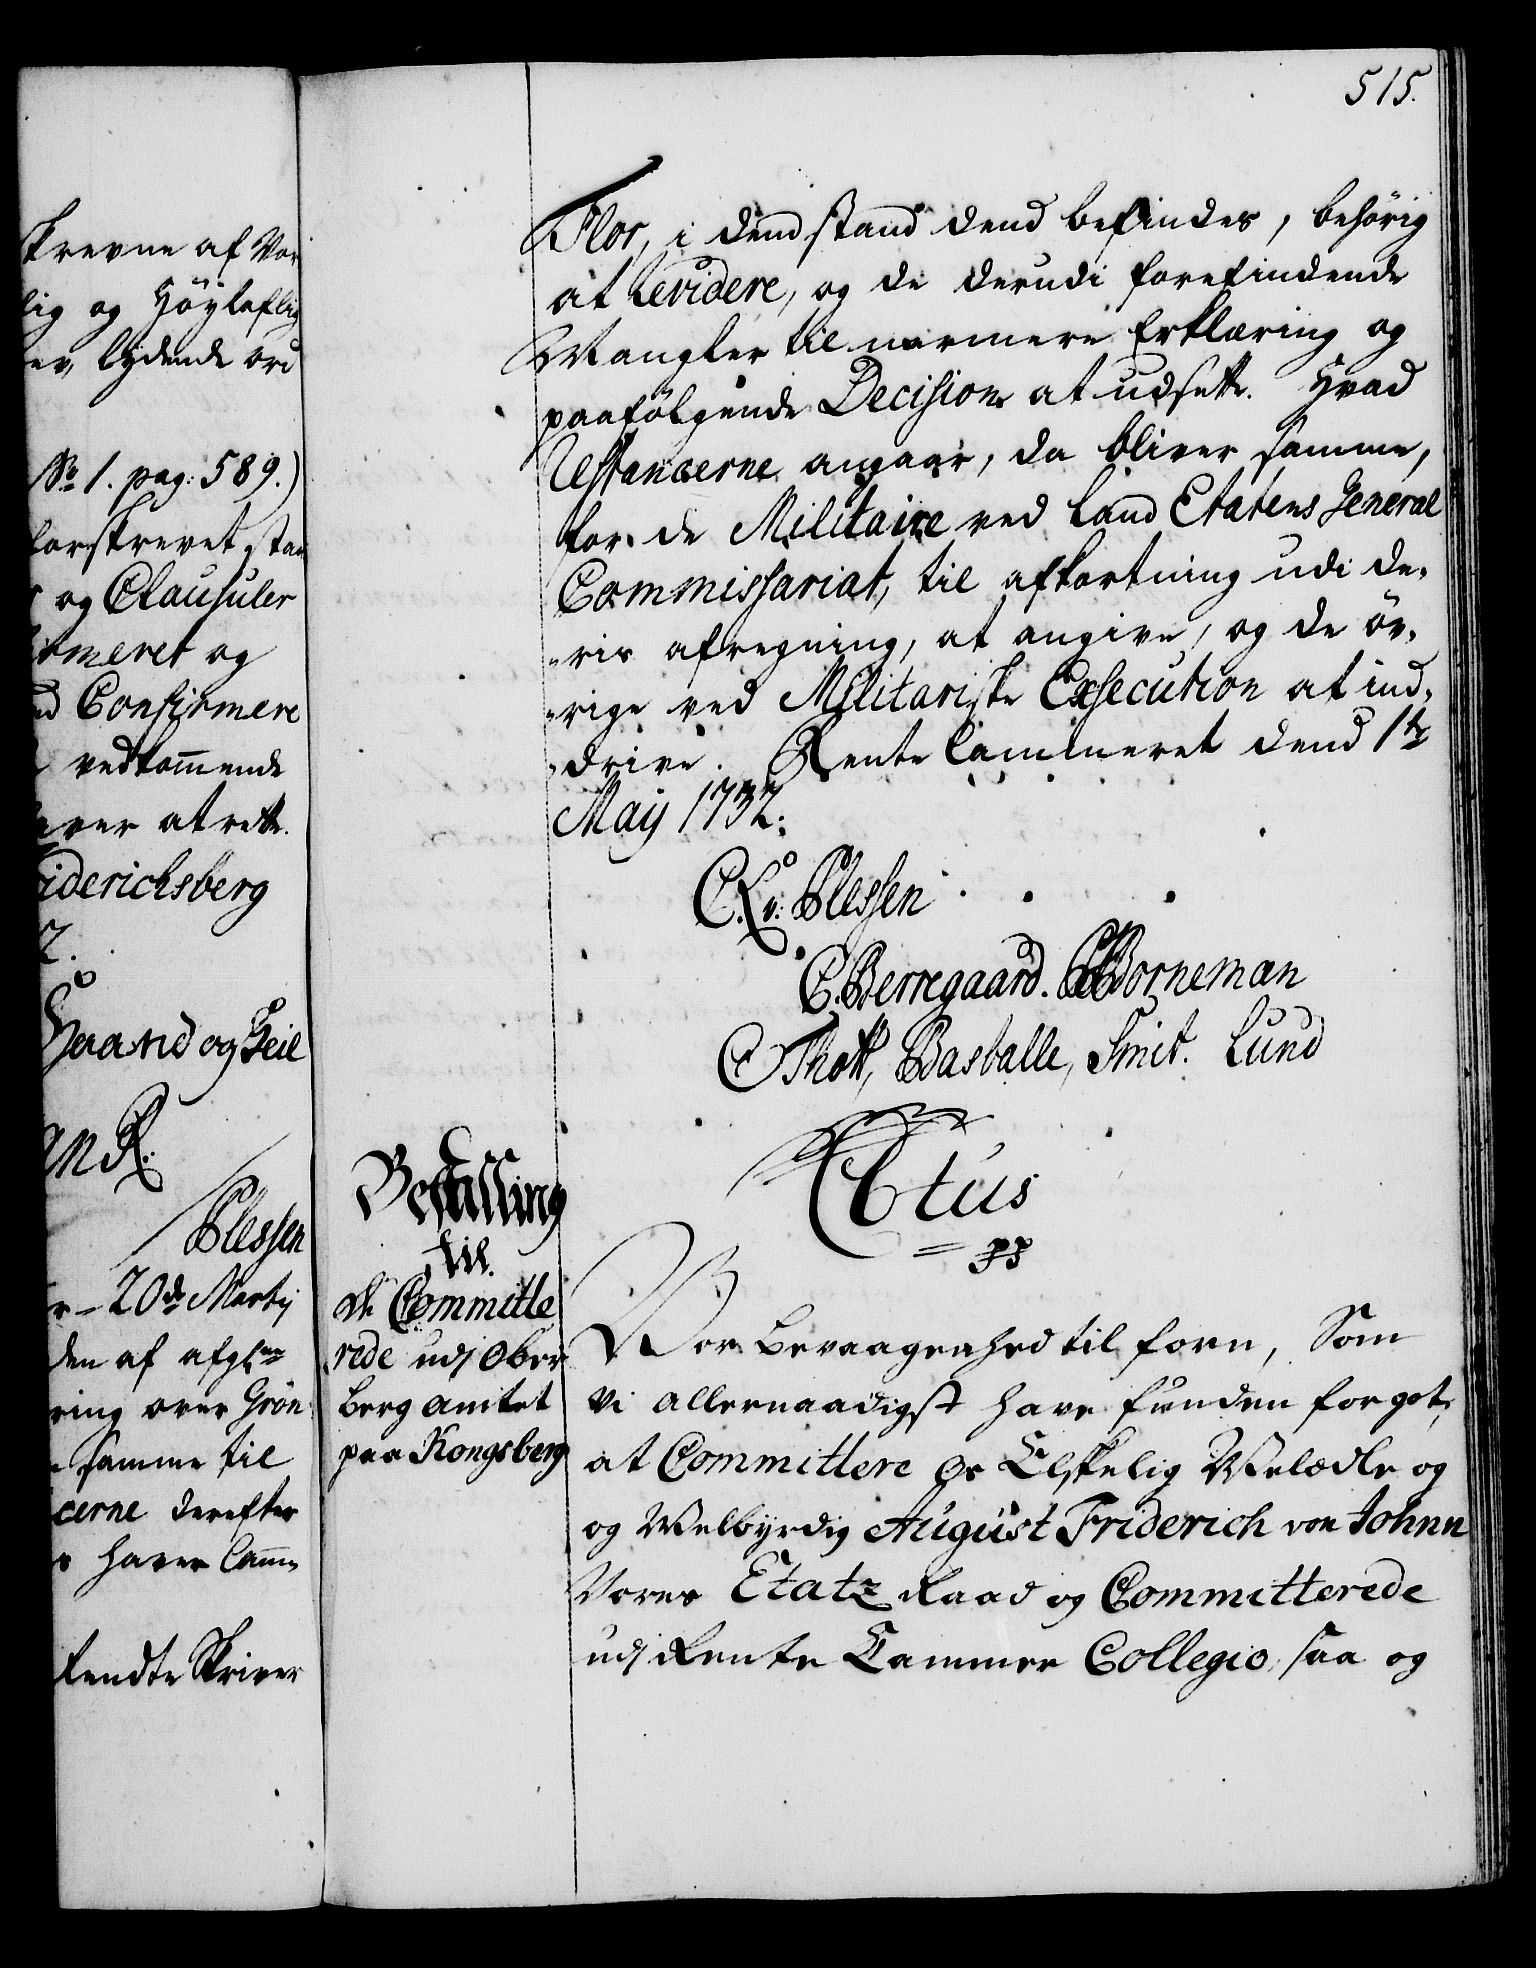 skrevne af Vor
lig og Höyloflig
er, lÿdende ord
No 1. pag: 589.)
forskrevet, stan
og Clausuler
firmeret og
nd Confirmere
vedkom̄ende
aver at rette.
riderichsberg
2.
Haand og Zeil
an R.
Plessen
20de Martij
den af afgl:ne
ring over Grön
samme til
cerne derefter
haver Cam̄
Fendte Skriver
515.
Flor, i dend stand dend befindes, behörig
at Revidere, og de derudi forefindende
Mangler til nærmere Erklæring og
paafölgende Decision at udsette. Hvad
Restancerne angaar, da bliver samme,
for de Militaire ved Land Etatens General
Commissariat, til afkortning udi de-
ris afregning, at angive, og de öv-
rige ved Militariske Exsecution at ind-
drive. Rente Cammeret dend 1te
Maij 1732.
C. L. v. Plessen
C. Berregaard. Borneman
O Thott, Basballe, Smit. Lund
Bestalling
til
de Committe
rede udj Ober
berg amtet
paa Kongsberg
C6tus
= pp
Vor bevaagenhed tilforn, Som
vi allernaadigst have funden for got,
at Committere Os Elskelig Welædle og
og Welbyrdig August Friderich von Johnn
Vores Etatz Raad og Committerede
udj Rente Cammer Collegio, saa og